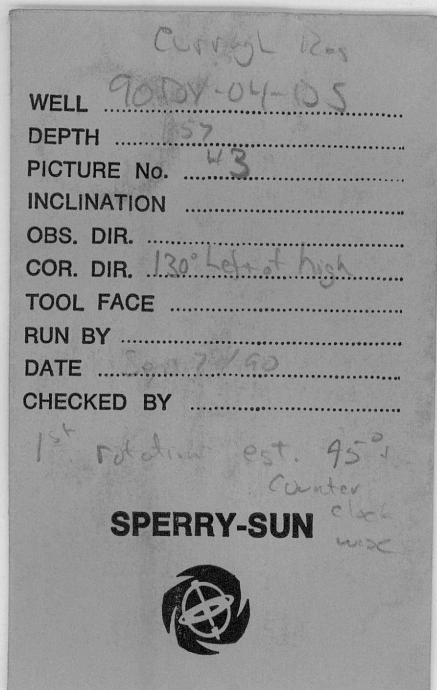 Curragh Res
WELL 90DY-04-DS
DEPTH 157
PICTURE No. #3
INCLINATION
OBS. DIR.
COR. DIR. 130° Left of high
TOOL FACE
RUN BY
DATE 7/90
CHECKED BY
1st rotation est. 95°
Counter
clock
wise
SPERRY-SUN